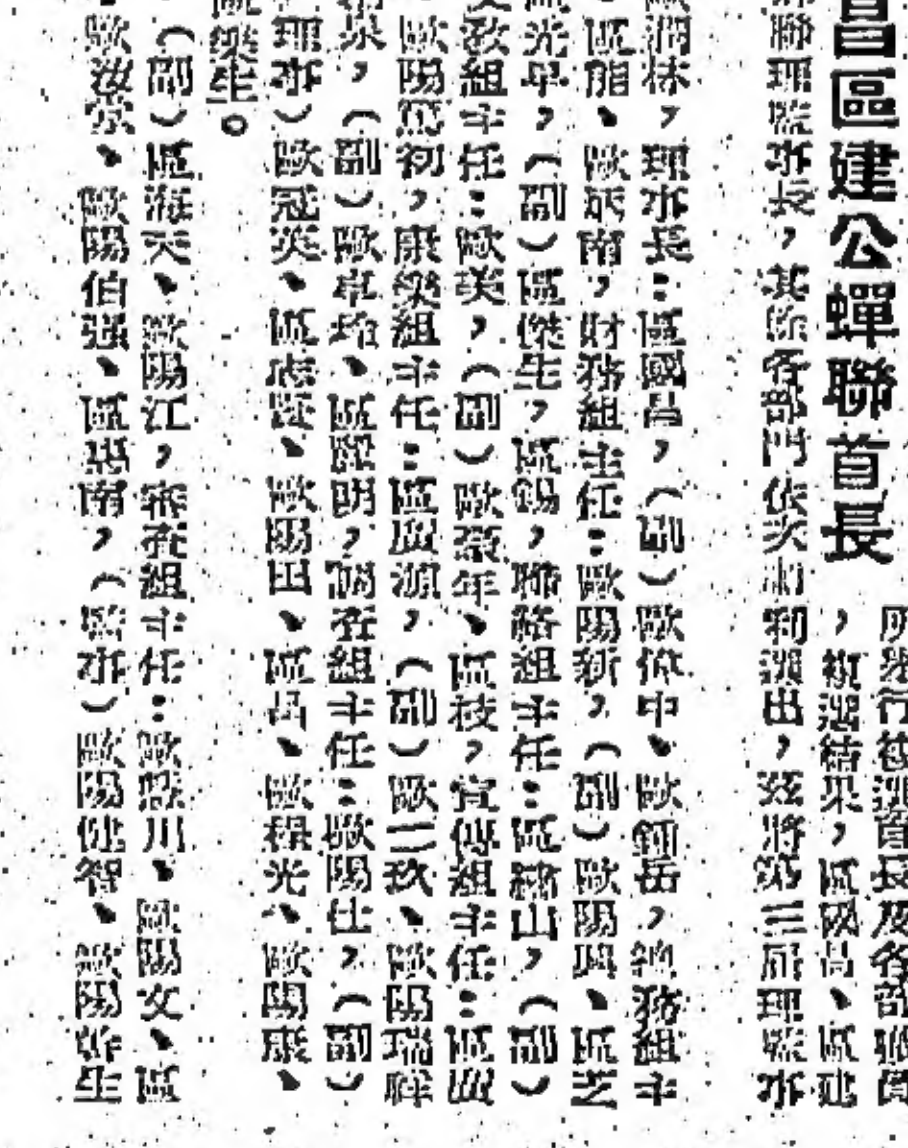 昌區建公蟬聯首長
所舉行複選首長及各部職
，複選結果，區國昌、區建
聯理監事長，其餘各部門依次利選出，茲將第三屆理監事
潤林，理事長：區國昌，（副）歐仰中、歐鍾岳，總務組主
區能、歐炳南，財務組主任：歐陽新，（副）歐陽興、區芝
光卓，（副）區傑生，區錫，聯絡組主任：區錦山，（副）
文教組主任：歐美，（副）歐發年、區技，宣傳組主任：區
歐陽篤初，康樂組主任：區廣源，（副）歐三玖、歐陽瑞祥
泉，（副）歐卓培、區明，調查組主任：歐陽仕，（副）
理事）歐冠英、區志賢、歐陽田、區昌、歐楫光、歐陽康、
樂生。
（副）區海天、歐陽江，審查組主任：歐川、歐陽女、區
歐汝棠、歐陽伯强、區惠南，（監事）歐陽健智、歐陽生